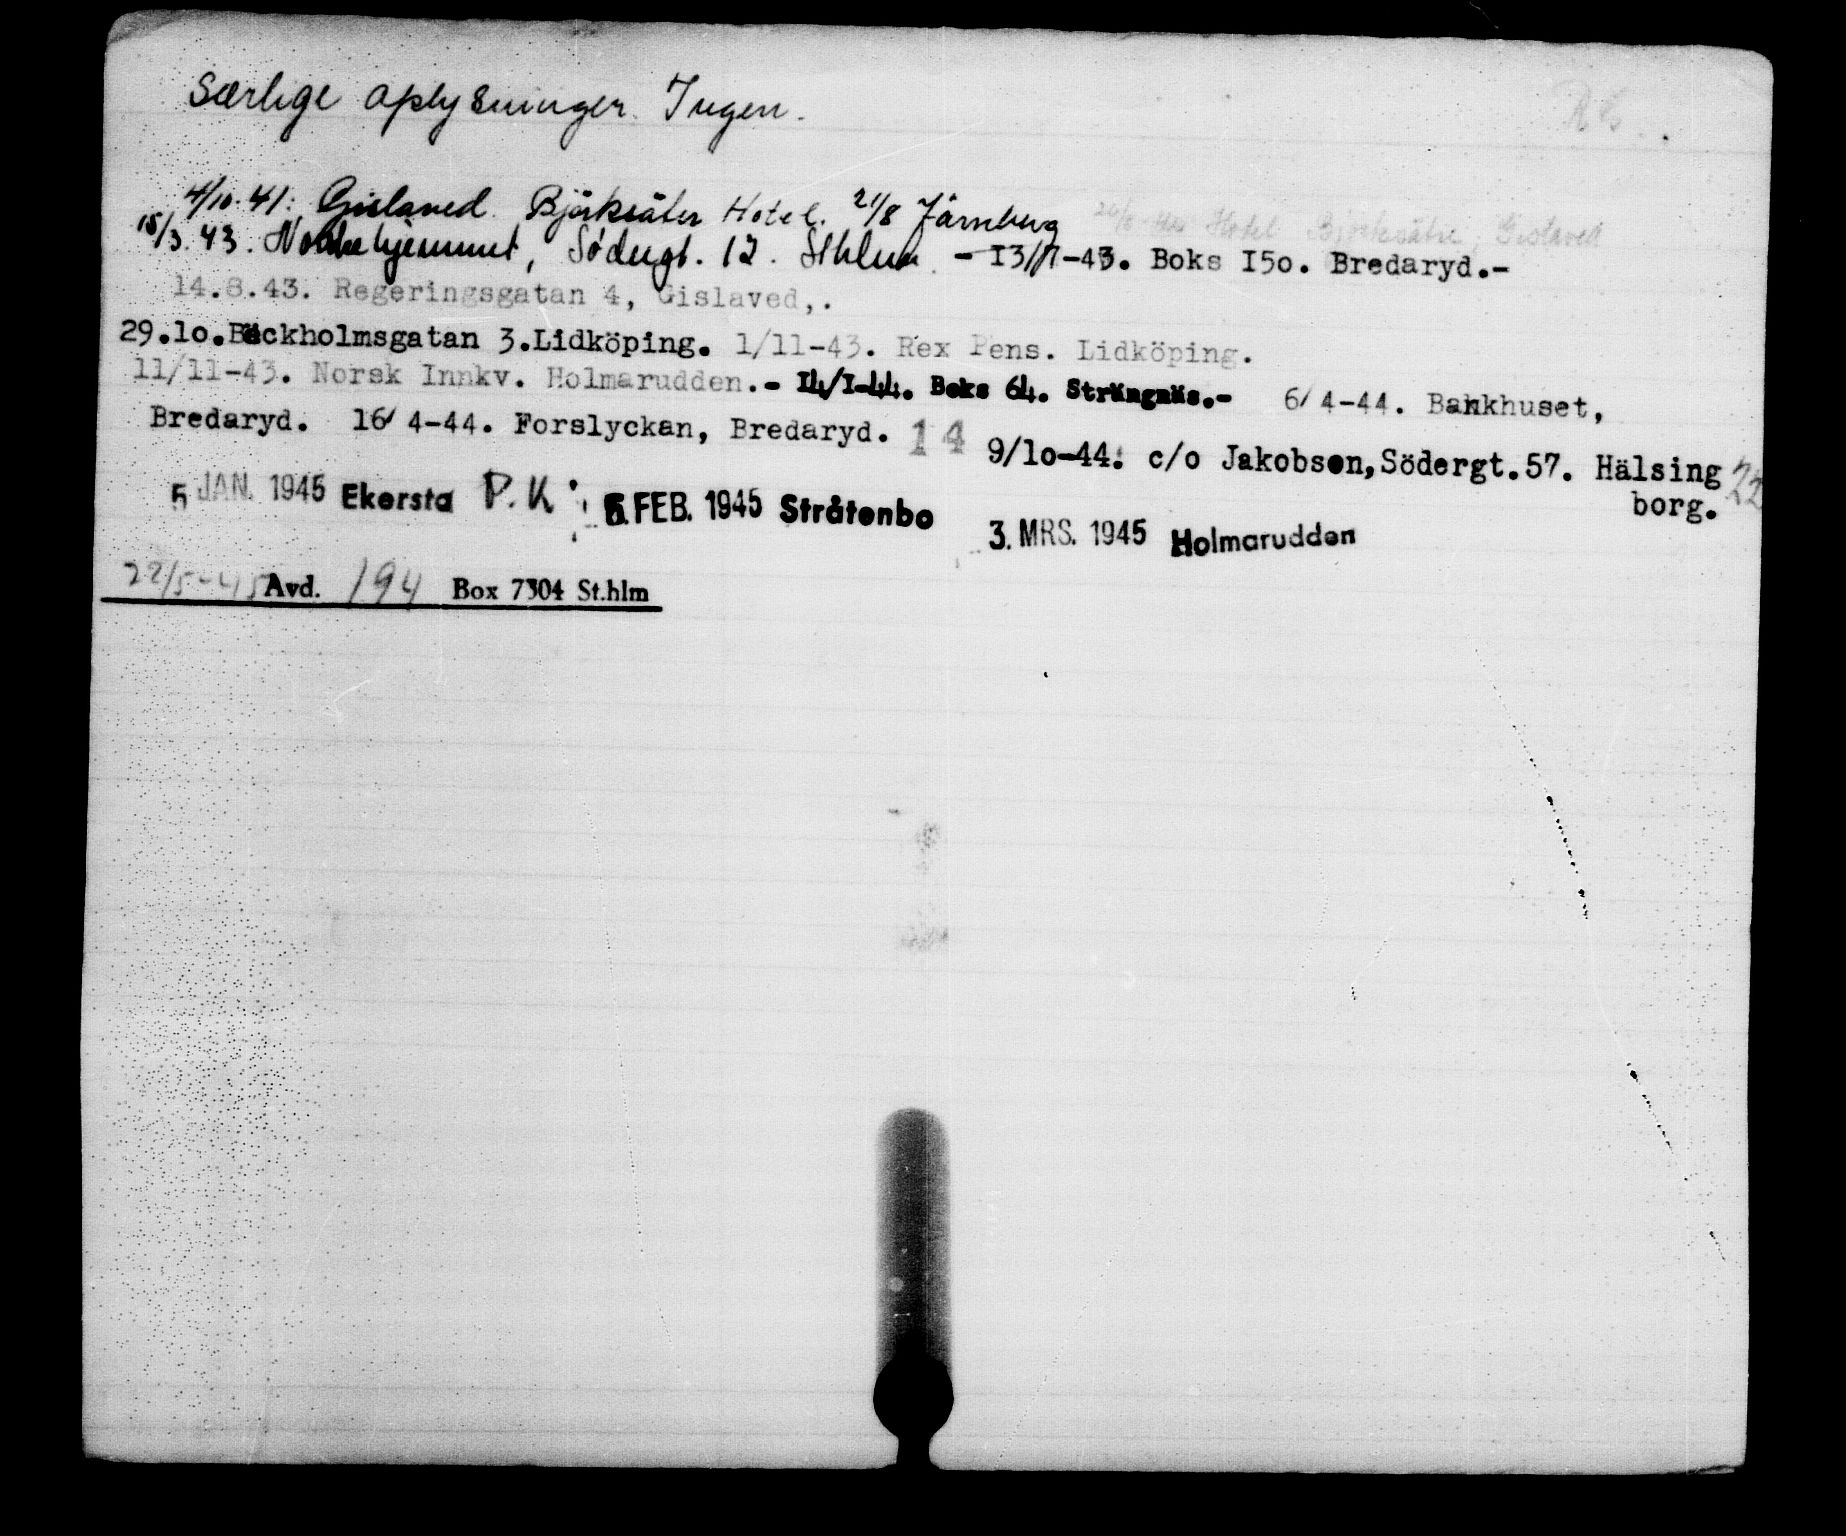 Særlige oplysninger. Ingen.
4/10.41. Gislaved. Björksäter Hotel. 21/8 Järnberg Hotel Björksäter, Gislaved
15/3.43. Södergt. 12. Sthlm. - I3/7-43. Boks I5o. Bredaryd.-
14.8.43. Regeringsgatan 4, Gislaved,.
29.lo.Bäckholmsgatan 3.Lidköping. 1/11-43. Rex Pens. Lidköping.
11/11-43. Norsk Innkv. Holmarudden.- I4/I-44. Boks 64. Strängnäs.- 6/4-44. Bankhuset,
Bredaryd. 16/4-44. Forslyckan, Bredaryd. 14 9/lo-44. c/o Jakobson,Södergt.57. Hälsing 22
borg.
5 JAN. 1945 Ekersta P.K. 6. FEB. 1945 Stråtenbo
3. MRS. 1945 Holmarudden
22/5-45 Avd. 194 Box 7304 St.hlm